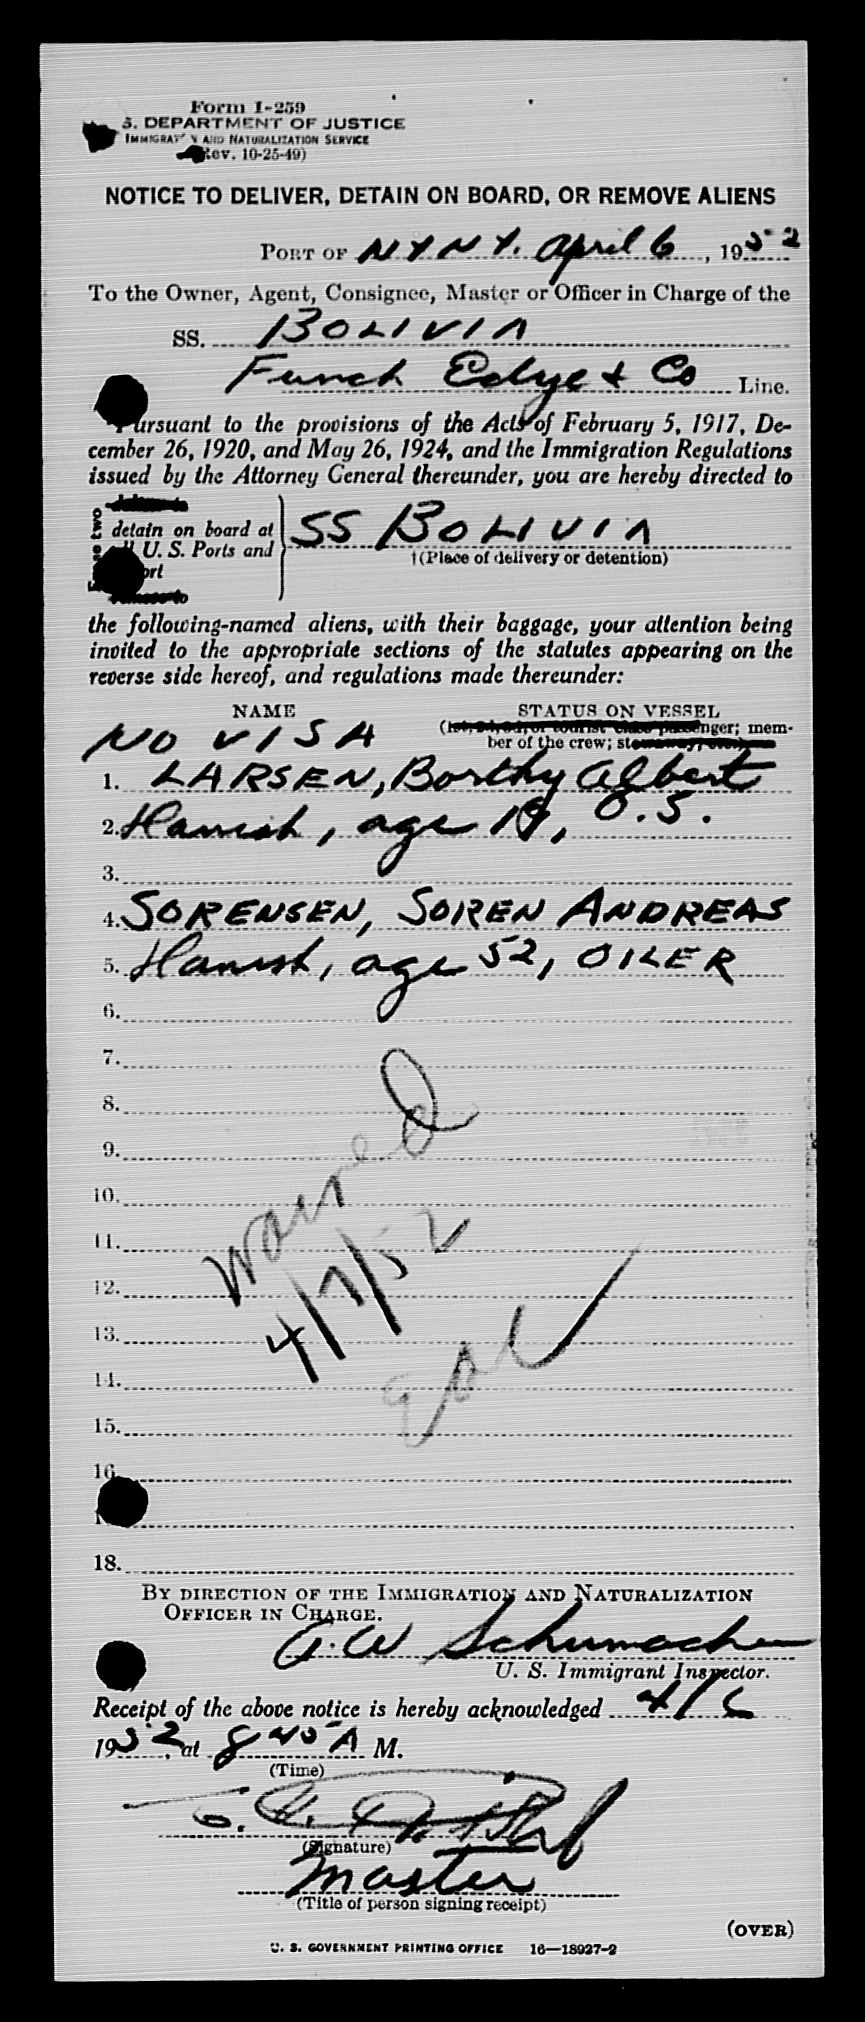 Form I-259
S. DEPARTMENT OF JUSTICE
IMMIGRATION AND NATURALIZATION SERVICE
(Rev. 10-25-49)
NOTICE TO DELIVER, DETAIN ON BOARD, OR REMOVE ALIENS
PORT OF NYNY. April 6, 1952
To the Owner, Agent, Consignee, Master or Officer in Charge of the
SS. BOLIVIA
Funch Edye & Co Line.
Pursuant to the provisions of the Acts of February 5, 1917, De-
cember 26, 1920, and May 26, 1924, and the Immigration Regulations
issued by the Attorney General thereunder, you are hereby directed to
detain on board at
U. S. Ports and
SS BOLIVIA
†(Place of delivery or detention)
the following-named aliens, with their baggage, your attention being
invited to the appropriate sections of the statutes appearing on the
reverse side hereof, and regulations made thereunder:
NAME STATUS ON VESSEL
NO VISA (1st, 2d, 3d, or tourist class passenger; mem-
ber of the crew; stowaway, etc.)
1. LARSEN, Borthy Albert
2. Danish, age 19, O.S.
3.
4. SORENSEN, SOREN ANDREAS
5. Danish, age 52, OILER
6.
7.
8.
9.
10.
11.
12.
13.
14.
15.
16.
18.
Waived
4/7/52
BY DIRECTION OF THE IMMIGRATION AND NATURALIZATION
OFFICER IN CHARGE.
A.W Schumacher
U. S. Immigrant Inspector.
Receipt of the above notice is hereby acknowledged 4/6
1952, at 8 45 A M.
(Time)
(Signature)
Master
(Title of person signing receipt)
(OVER)
U. S. GOVERNMENT PRINTING OFFICE 16—18927-2